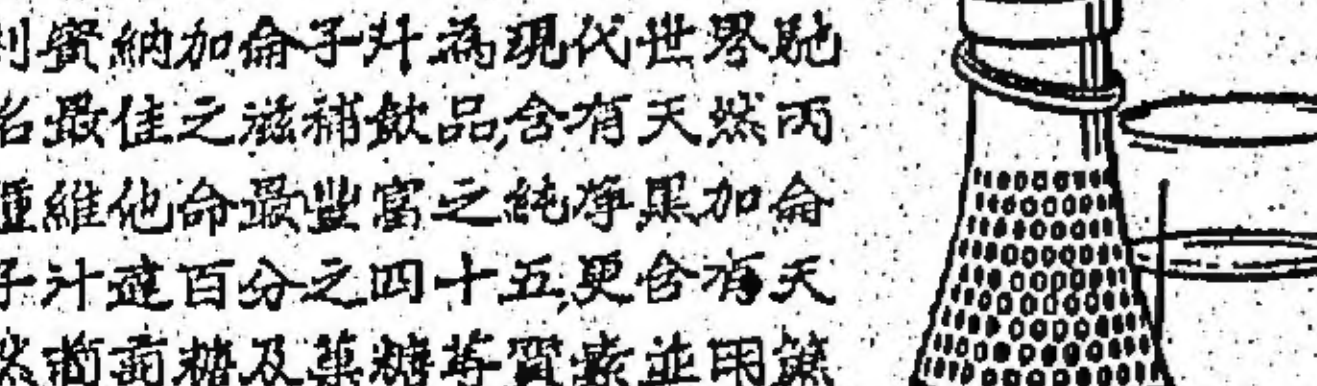 利賓納加侖子汁為現代世界馳
名最佳之滋補飲品,含有天然丙
種維他命最豐富之純淨黑加侖
子汁達百分之四十五,更含有天
然葡萄糖及菓糖等質素並用